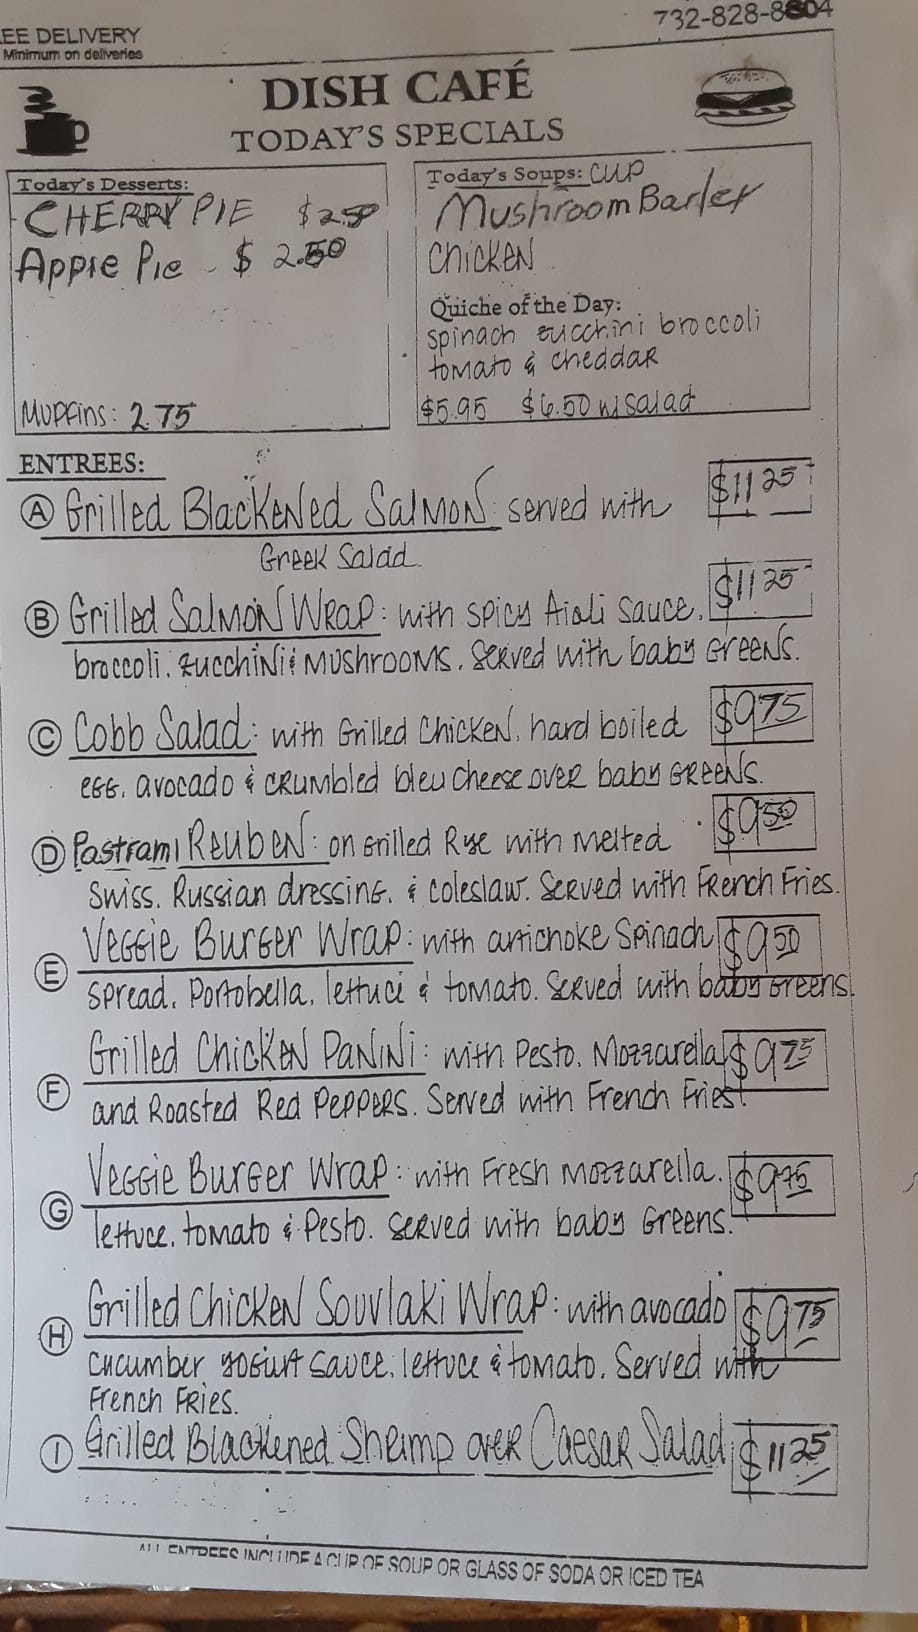 EE DELIVERY
Minimum on deliveries
732-828-8804
DISH CAFÉ
TODAY'S SPECIALS
Today's Desserts:
CHERRY PIE $2.50
Apple Pie - $2.50
Muffins: 2.75
Today's Soups: CUP
Mushroom Barley
Chicken
Quiche of the Day:
spinach zucchini broccoli
tomato & cheddar
$5.95 $6.50 w/salad
ENTREES:
A Grilled Blackened Salmon: served with $11 25
Greek Salad.
B Grilled Salmon Wrap: with spicy Aioli sauce, $11 25
broccoli, zucchini & mushrooms. Served with baby Greens.
C Cobb Salad: with Grilled Chicken, hard boiled $9 75
egg, avocado & crumbled bleu cheese over baby Greens.
D Pastrami Reuben: on Grilled Rye with melted $9 50
Swiss, Russian dressing, & coleslaw. Served with French Fries.
E Veggie Burger Wrap: with artichoke spinach $9 50
spread, Portobella, lettuce & tomato. Served with baby Greens.
F Grilled Chicken Panini: with Pesto, Mozzarella $9 75
and Roasted Red Peppers. Served with French Fries.
G Veggie Burger Wrap: with Fresh mozzarella, $9 75
lettuce, tomato & Pesto. Served with baby Greens.
H Grilled Chicken Souvlaki Wrap: with avocado $9 75
cucumber yogurt sauce, lettuce & tomato. Served with
French Fries.
I Grilled Blackened Shrimp over Caesar Salad $11 25
ALL ENTREES INCLUDE A CUP OF SOUP OR GLASS OF SODA OR ICED TEA